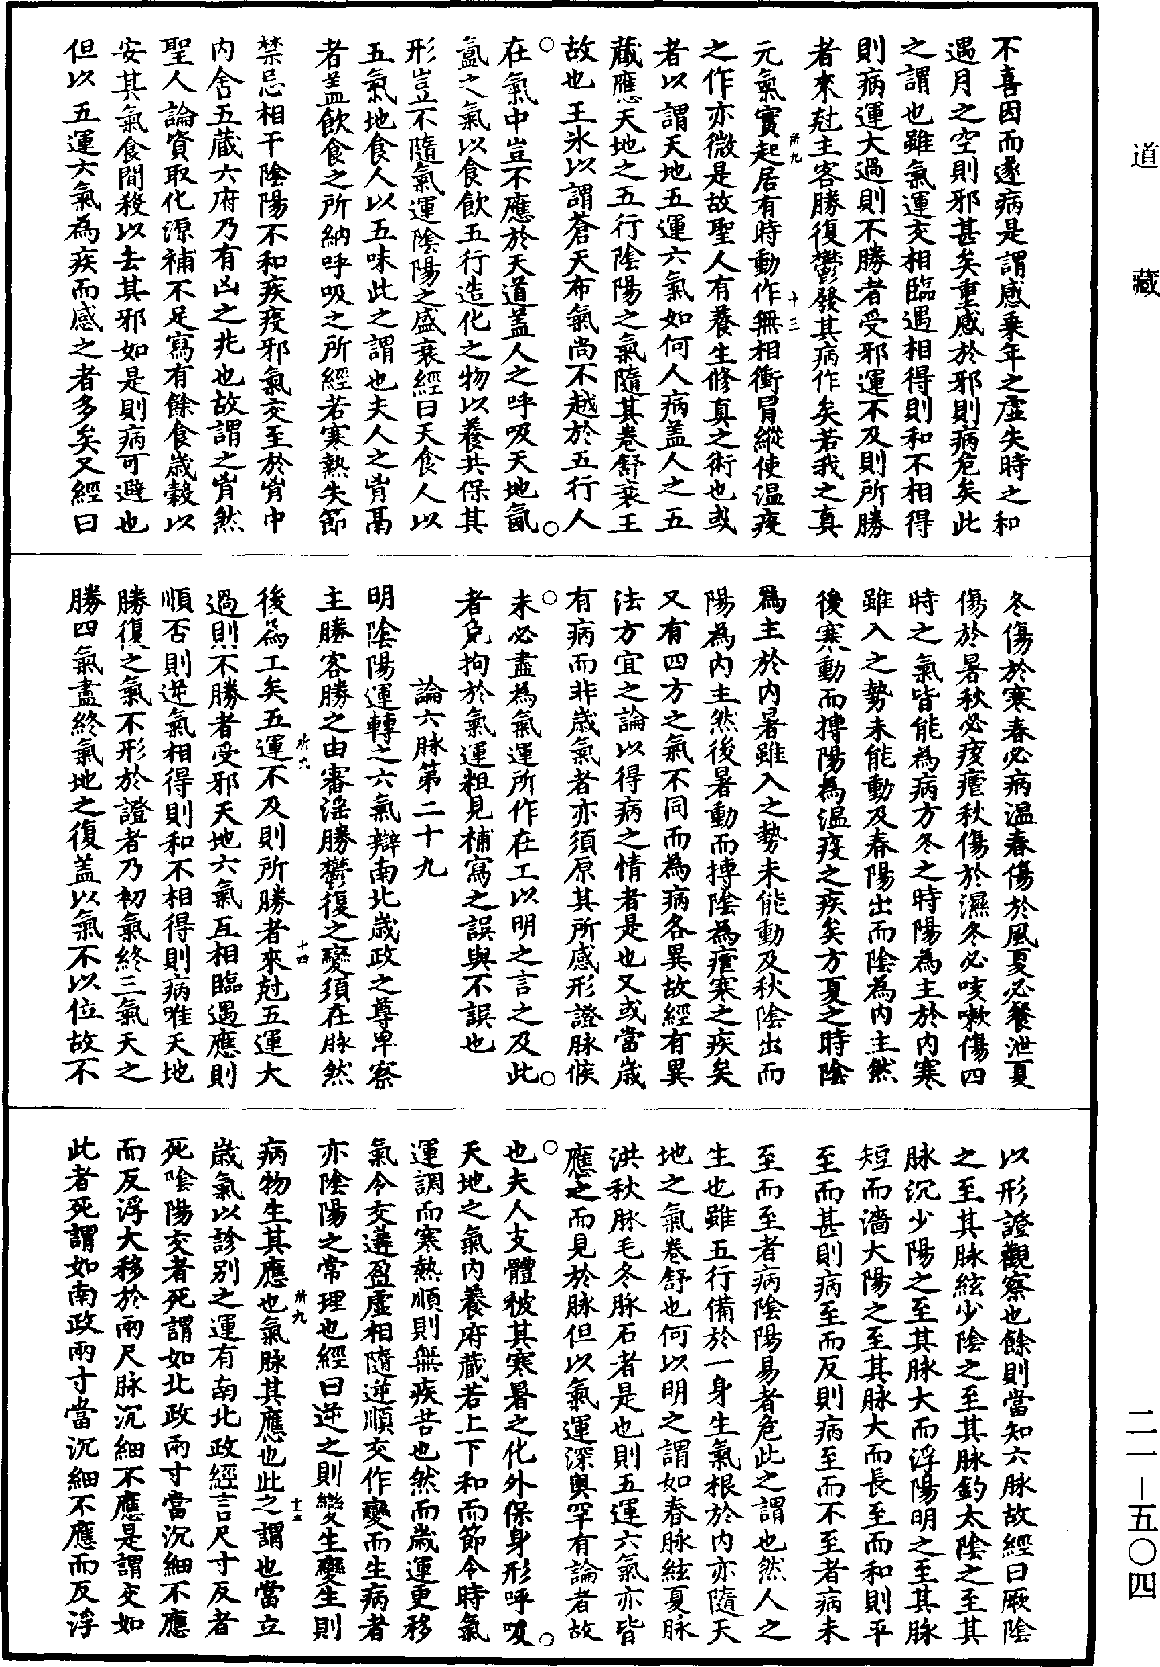 道藏
不喜因而遂病是謂感乘年之虛失時之和
遇月之空則邪甚矣重感於邪則病危矣此
之謂也雖氣運交相臨遇相得則和不相得
則病運大過則不勝者受邪運不及則所勝
者來尅主客勝復鬱發其病作矣若我之真
元氣實起居有時動作無相衝冒縱使溫疫
之作亦微是故聖人有養生修真之術也或
者以謂天地五運六氣如何人病盖人之五
藏應天地之五行陰陽之氣隨其卷舒衰王
故也王氷以謂蒼天布氣尚不越於五行人
在氣中豈不應於天道蓋人之呼吸天地氤
氳之氣以食飲五行造化之物以養共保其
形豈不隨氣運陰陽之盛衰經曰天食人以
五氣地食人以五味此之謂也夫人之胷鬲
者盖飲食之所納呼吸之所經若寒熱失節
禁忌相干陰陽不和疾疫邪氣交至於胷中
內舍五藏六府乃有凶之兆也故謂之胷然
聖人論資取化源補不足寫有餘食歲穀以
安其氣食間穀以去其邪如是則病可避也
但以五運六氣為疾而感之者多矣又經曰
冬傷於寒春必病溫春傷於風夏必飧泄夏
傷於暑秋必痎瘧秋傷於濕冬必咳嗽傷四
時之氣皆能為病方冬之時陽為主於內寒
雖入之勢未能動及春陽出而陰為內主然
後寒動而搏陽為溫疫之疾矣方夏之時陰
為主於內暑雖入之勢未能動及秋陰出而
陽為內主然後暑動而搏陰為瘧寒之疾矣
又有四方之氣不同而為病各異故經有異
法方宜之論以得病之情者是也又或當歲
有病而非歲氣者亦須原其所感形證脉候
未必盡為氣運所作在工以明之言之及此
者免拘於氣運粗見補寫之誤與不誤也
論六脉第二十九
明陰陽運轉之六氣辯南北歲政之尊卑察
主勝客勝之由審淫勝鬱復之變須在脉然
後為工矣五運不及則所勝者來尅五運大
過則不勝者受邪天地六氣互相臨遇應則
順否則逆氣相得則和不相得則病唯天地
勝復之氣不形於證者乃初氣終三氣天之
勝四氣盡終氣地之復蓋以氣不以位故不
以形證觀察也餘則當知六脉故經曰厥陰
之至其脉絃少陰之至其脉鈎太陰之至其
脉沉少陽之至其脉大而浮陽明之至其脉
短而濇大陽之至其脉大而長至而和則平
至而甚則病至而反則病至而不至者病未
至而至者病陰陽易者危此之謂也然人之
生也雖五行備於一身生氣根於內亦隨天
地之氣卷舒也何以明之謂如春脉絃夏脉
洪秋脉毛冬脉石者是也則五運六氣亦皆
應之而見於脉但以氣運深奧罕有論者故
也夫人支體被其寒暑之化外保身形呼吸
天地之氣內養府藏若上下和而節令時氣
運調而寒熱順則無疾苦也然而歲運更移
氣令交遘盈虛相隨逆順交作變而生病者
亦陰陽之常理也經曰逆之則變生變生則
病物生其應也氣脉其應也此之謂也當立
歲氣以診別之運有南北政經言尺寸反者
死陰陽交者死謂如北政兩寸當沉細不應
而反浮大移於兩尺脉沉細不應是謂交如
此者死謂如南政兩寸當沉細不應而反浮
二一—五〇四